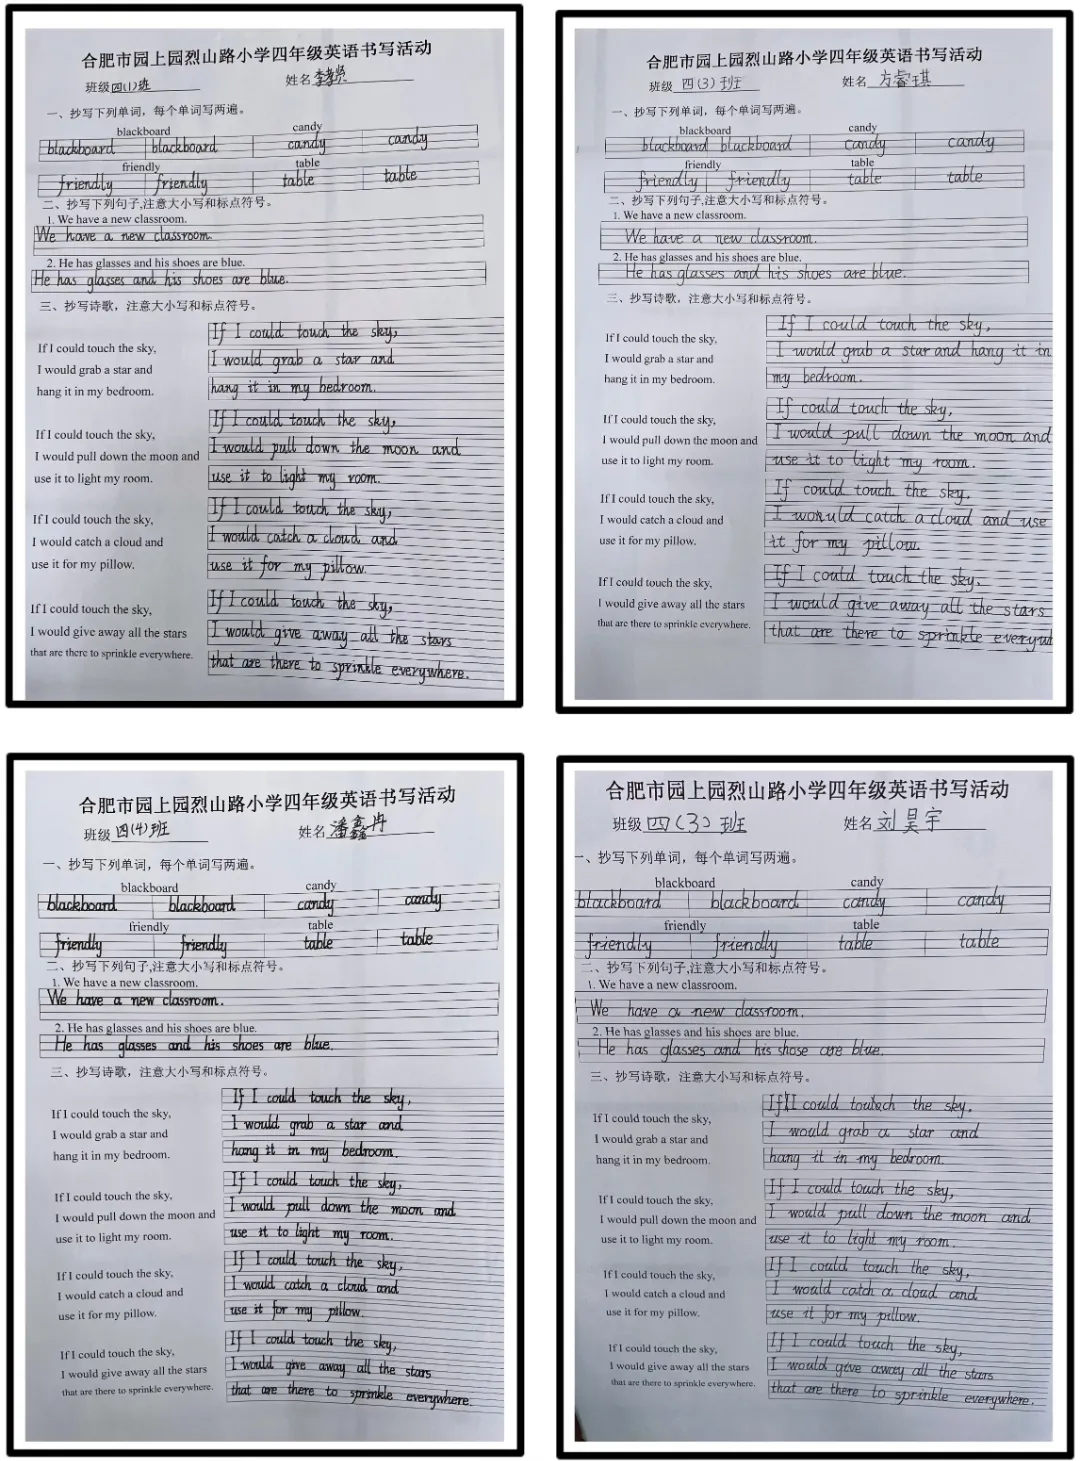 合肥市园上园烈山路小学四年级英语书写活动
班级 四(1)班 姓名 李孝贤
一、抄写下列单词，每个单词写两遍。
blackboard candy
blackboard blackboard candy candy
friendly table
friendly friendly table table
二、抄写下列句子,注意大小写和标点符号。
1. We have a new classroom.
We have a new classroom.
2. He has glasses and his shoes are blue.
He has glasses and his shoes are blue.
三、抄写诗歌，注意大小写和标点符号。
If I could touch the sky,
I would grab a star and
hang it in my bedroom.
If I could touch the sky,
I would pull down the moon and
use it to light my room.
If I could touch the sky,
I would catch a cloud and
use it for my pillow.
If I could touch the sky,
I would give away all the stars
that are there to sprinkle everywhere.
If I could touch the sky,
I would grab a star and
hang it in my bedroom.
If I could touch the sky,
I would pull down the moon and
use it to light my room.
If I could touch the sky,
I would catch a cloud and
use it for my pillow.
If I could touch the sky,
I would give away all the stars
that are there to sprinkle everywhere.
合肥市园上园烈山路小学四年级英语书写活动
班级 四(3)班 姓名 方睿琪
一、抄写下列单词，每个单词写两遍。
blackboard candy
blackboard blackboard candy candy
friendly table
friendly friendly table table
二、抄写下列句子,注意大小写和标点符号。
1. We have a new classroom.
We have a new classroom.
2. He has glasses and his shoes are blue.
He has glasses and his shoes are blue.
三、抄写诗歌，注意大小写和标点符号。
If I could touch the sky,
I would grab a star and
hang it in my bedroom.
If I could touch the sky,
I would pull down the moon and
use it to light my room.
If I could touch the sky,
I would catch a cloud and
use it for my pillow.
If I could touch the sky,
I would give away all the stars
that are there to sprinkle everywhere.
If I could touch the sky,
I would grab a star and hang it in
my bedroom.
If could touch the sky,
I would pull down the moon and
use it to light my room.
If could touch the sky,
I would catch a cloud and use
it for my pillow.
If I could touch the sky.
I would give away all the stars
that are there to sprinkle
合肥市园上园烈山路小学四年级英语书写活动
班级 四(4)班 姓名 潘鑫冉
一、抄写下列单词，每个单词写两遍。
blackboard candy
blackboard blackboard candy candy
friendly table
friendly friendly table table
二、抄写下列句子,注意大小写和标点符号。
1. We have a new classroom.
We have a new classroom.
2. He has glasses and his shoes are blue.
He has glasses and his shoes are blue.
三、抄写诗歌，注意大小写和标点符号。
If I could touch the sky,
I would grab a star and
hang it in my bedroom.
If I could touch the sky,
I would pull down the moon and
use it to light my room.
If I could touch the sky,
I would catch a cloud and
use it for my pillow.
If I could touch the sky,
I would give away all the stars
that are there to sprinkle everywhere.
If I could touch the sky,
I would grab a star and
hang it in my bedroom.
If I could touch the sky,
I would pull down the moon and
use it to light my room.
If I could touch the sky,
I would catch a cloud and
use it for my pillow.
If I could touch the sky,
I would give away all the stars
that are there to sprinkle everywhere.
合肥市园上园烈山路小学四年级英语书写活动
班级 四(3)班 姓名 刘昊宇
一、抄写下列单词，每个单词写两遍。
blackboard candy
blackboard blackboard candy candy
friendly table
friendly friendly table table
二、抄写下列句子,注意大小写和标点符号。
1. We have a new classroom.
We have a new classroom.
2. He has glasses and his shoes are blue.
He has glasses and his shose are blue.
三、抄写诗歌，注意大小写和标点符号。
If I could touch the sky,
I would grab a star and
hang it in my bedroom.
If I could touch the sky,
I would pull down the moon and
use it to light my room.
If I could touch the sky,
I would catch a cloud and
use it for my pillow.
If I could touch the sky,
I would give away all the stars
that are there to sprinkle everywhere.
If I could the sky.
I would grab a star and
hang it in my bedroom.
If I could touch the sky,
I would pull down the moon and
use it to light my room.
If I could touch the sky,
I would catch a cloud and
use it for my pillow.
If I could touch the sky,
I would give away all the stars
that are there to sprinkle everywhere.